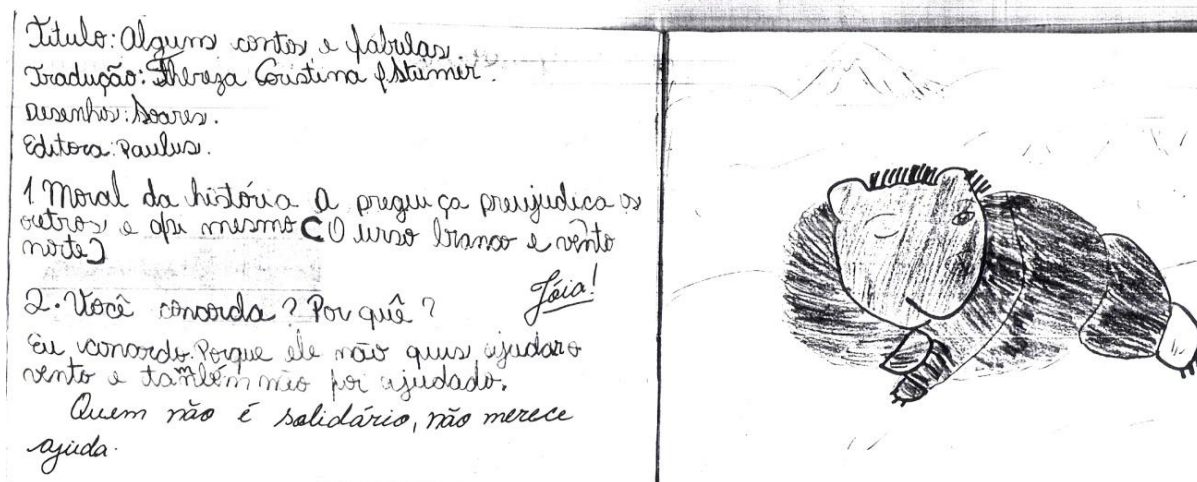 Título: Alguns contos e fábulas.
Tradução: Thereza Cristina Stummer.
Desenhos: Soares.
Editora: Paulus.
1 Moral da história A pregui ça preujudica os
outros e a si mesmo (O urso branco e vento
norte)
Jóia!
2. Você concorda? Por quê?
Eu concordo. Porque ele não quis ajudar o
vento e também não foi ajudado.
Quem não é solidário, não merece
ajuda.